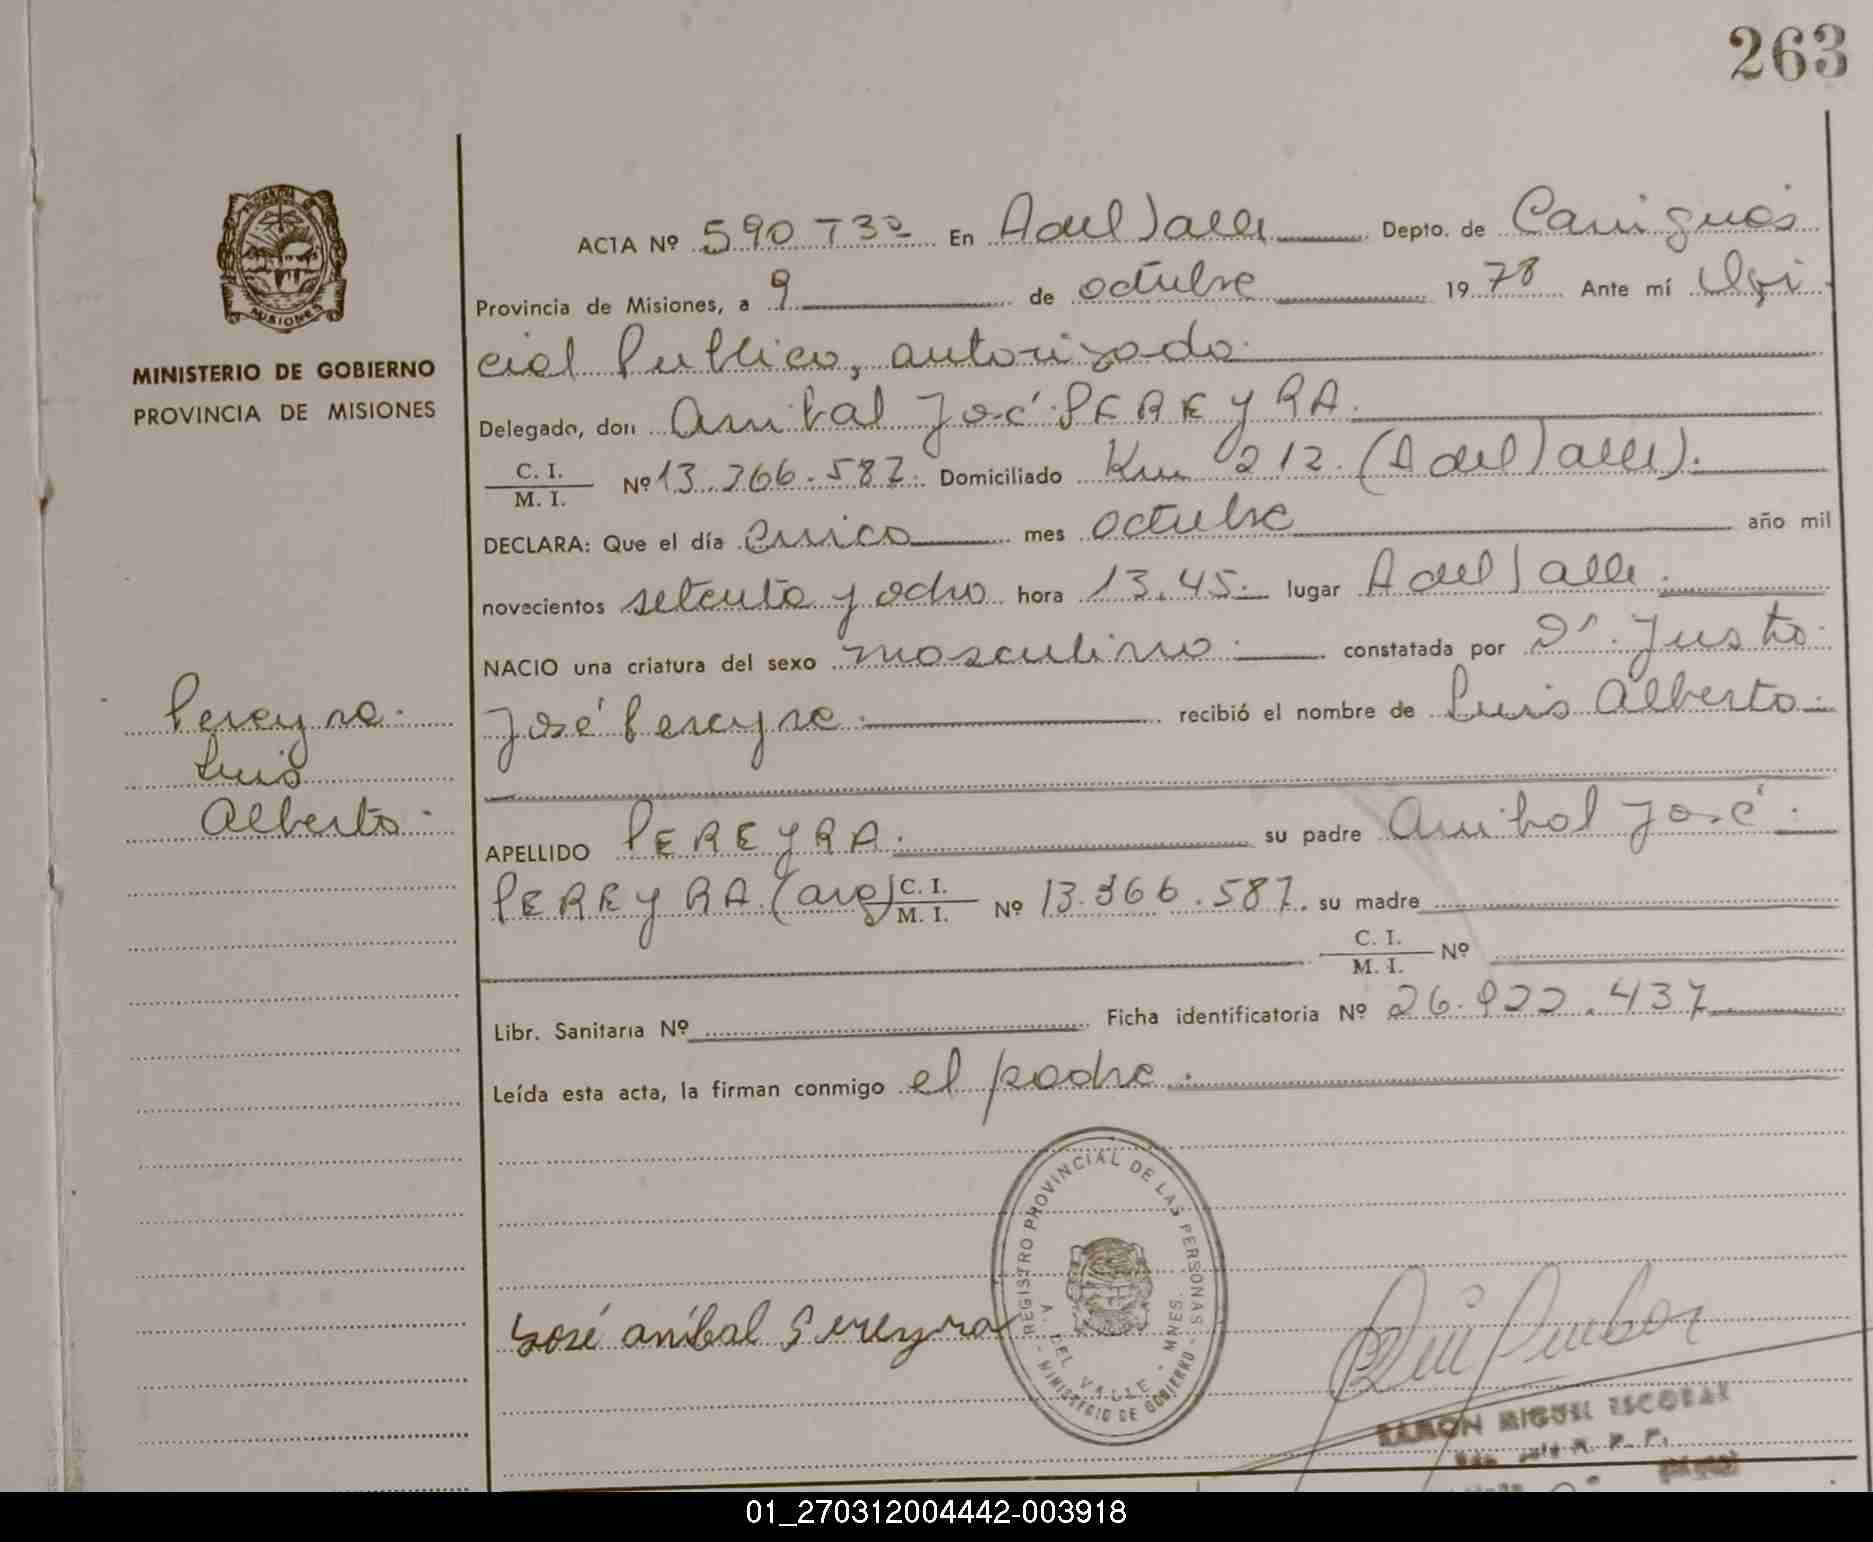 263
ACTA Nº 590 Tº 3º En A del Valle Depto. de Cainguás
Provincia de Misiones, a 9 de octubre 1978 Ante mí Ofi
cial Publico, autorizado.
MINISTERIO DE GOBIERNO
PROVINCIA DE MISIONES
Delegado, don Anibal José PEREYRA.
C. I. / M. I. Nº 13.366.587. Domiciliado Km 212. (A del Valle).
DECLARA: Que el día cinco mes octubre año mil
novecientos setenta y ocho hora 13.45. lugar A del Valle.
NACIO una criatura del sexo masculino. constatada por Dr. Justo
José Pereyra. recibió el nombre de Luis Alberto.
Pereyra.
Luis
Alberto.
APELLIDO PEREYRA. su padre Anibal José.
PEREYRA (arg) C. I. / M. I. Nº 13.366.587. su madre
C. I. / M. I. Nº
Libr. Sanitaria Nº Ficha identificatoria Nº 26.922.437
Leída esta acta, la firman conmigo el padre.
REGISTRO PROVINCIAL DE LAS PERSONAS
A. DEL VALLE - MNES.
- MINISTERIO DE GOBIERNO -
José aníbal Pereyra
RAMON MIGUEL ESCOBAR
01_270312004442-003918